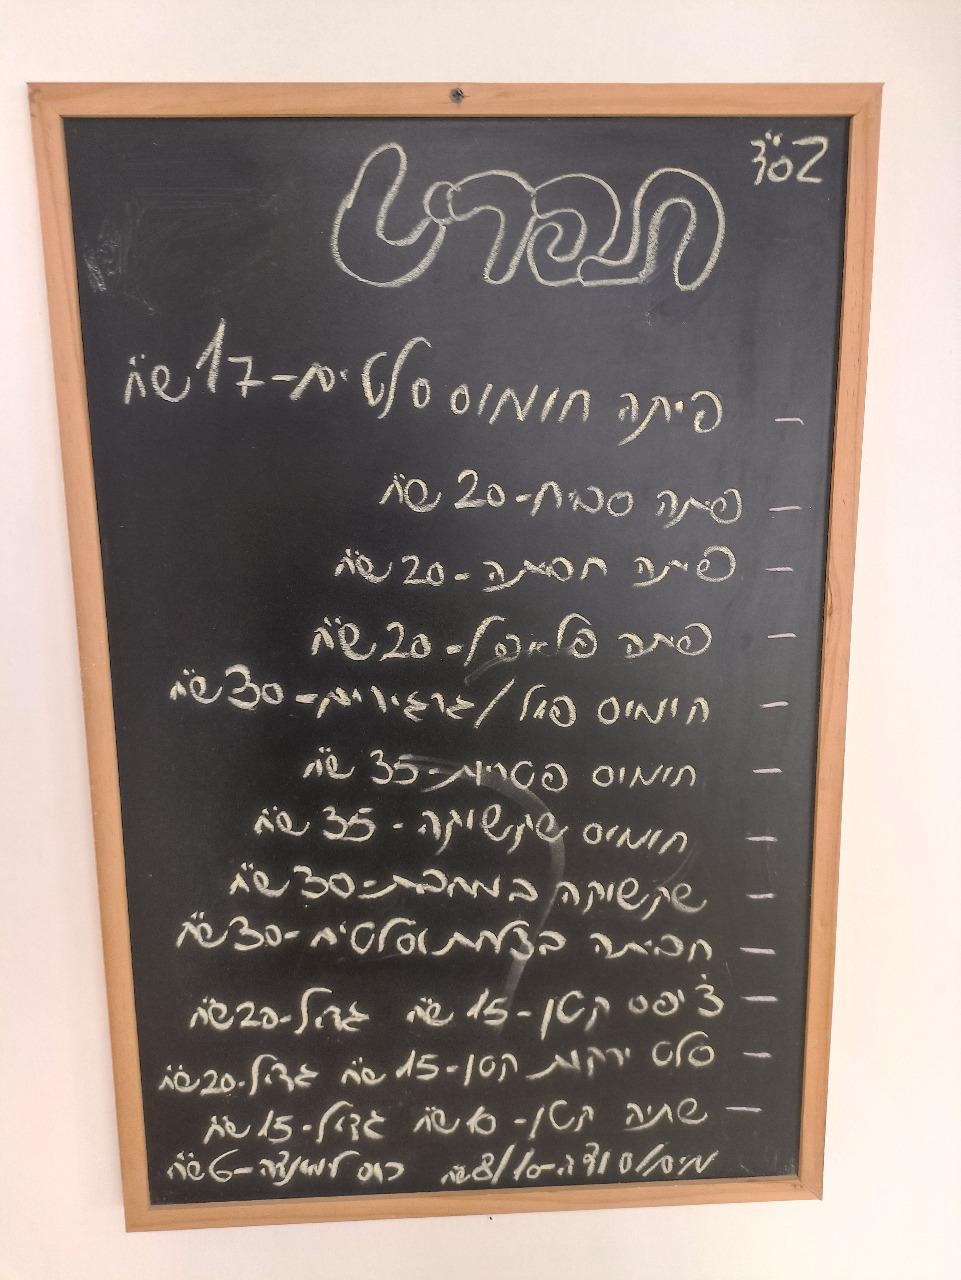 בס"ד
תפריט
- פיתה חומוס סלטים - 17 ש"ח
- פיתה סביח - 20 ש"ח
- פיתה חביתה - 20 ש"ח
- פיתה פלאפל - 20 ש"ח
- חומוס פול/גרגירים - 30 ש"ח
- חומוס פטריות - 35 ש"ח
- חומוס שקשוקה - 35 ש"ח
- שקשוקה במחבת - 30 ש"ח
- חביתה בצלחת וסלטים - 30 ש"ח
- צ'יפס קטן - 15 ש"ח גדול - 20 ש"ח
- סלט ירקות קטן - 15 ש"ח גדול - 20 ש"ח
- שתיה קטן - 10 ש"ח גדול - 15 ש"ח
מים/סודה - 8/10 ש"ח כוס לימונדה - 6 ש"ח